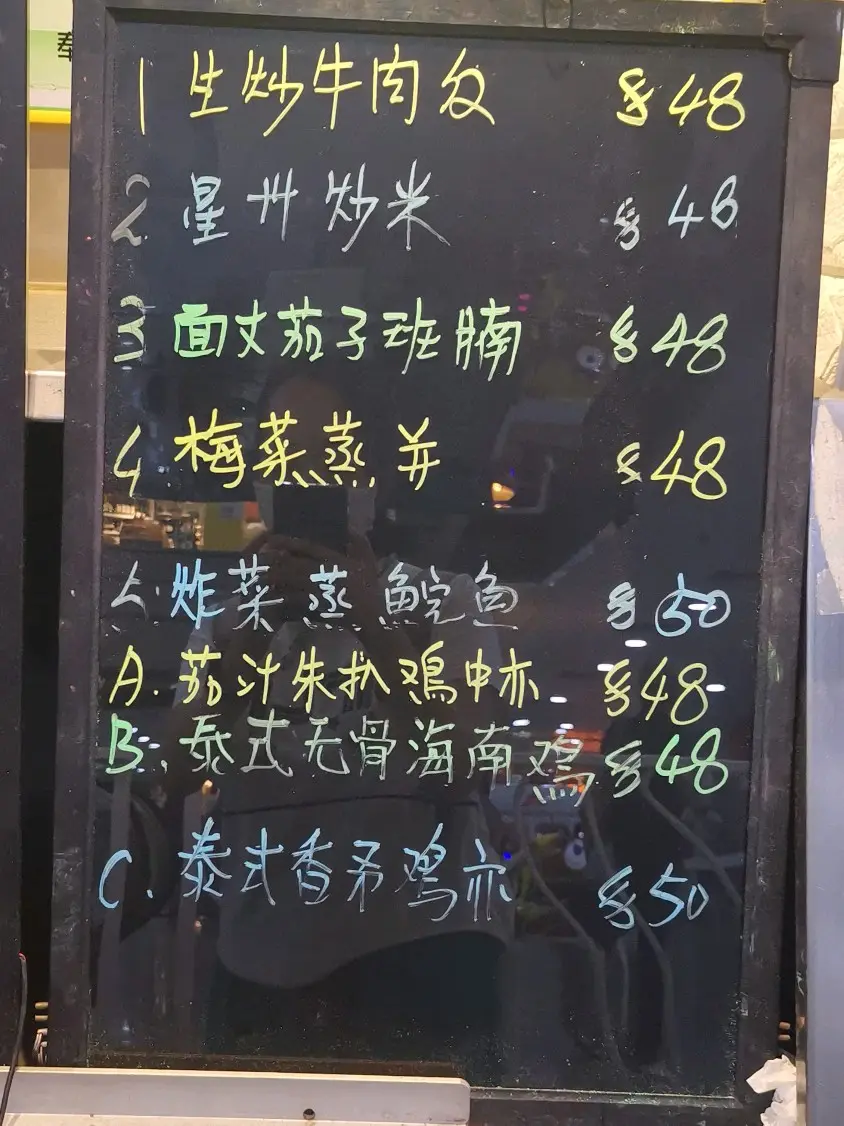 奉
1 生炒牛肉反 $48
2 星卅炒米 $48
3 面丈茄子班腩 $48
4 梅菜蒸并 $48
5. 炸菜蒸鯇鱼 $50
A. 茄汁朱扒鸡中亦 $48
B. 泰式无骨海南鸡 $48
C. 泰式香茅鸡亦 $50